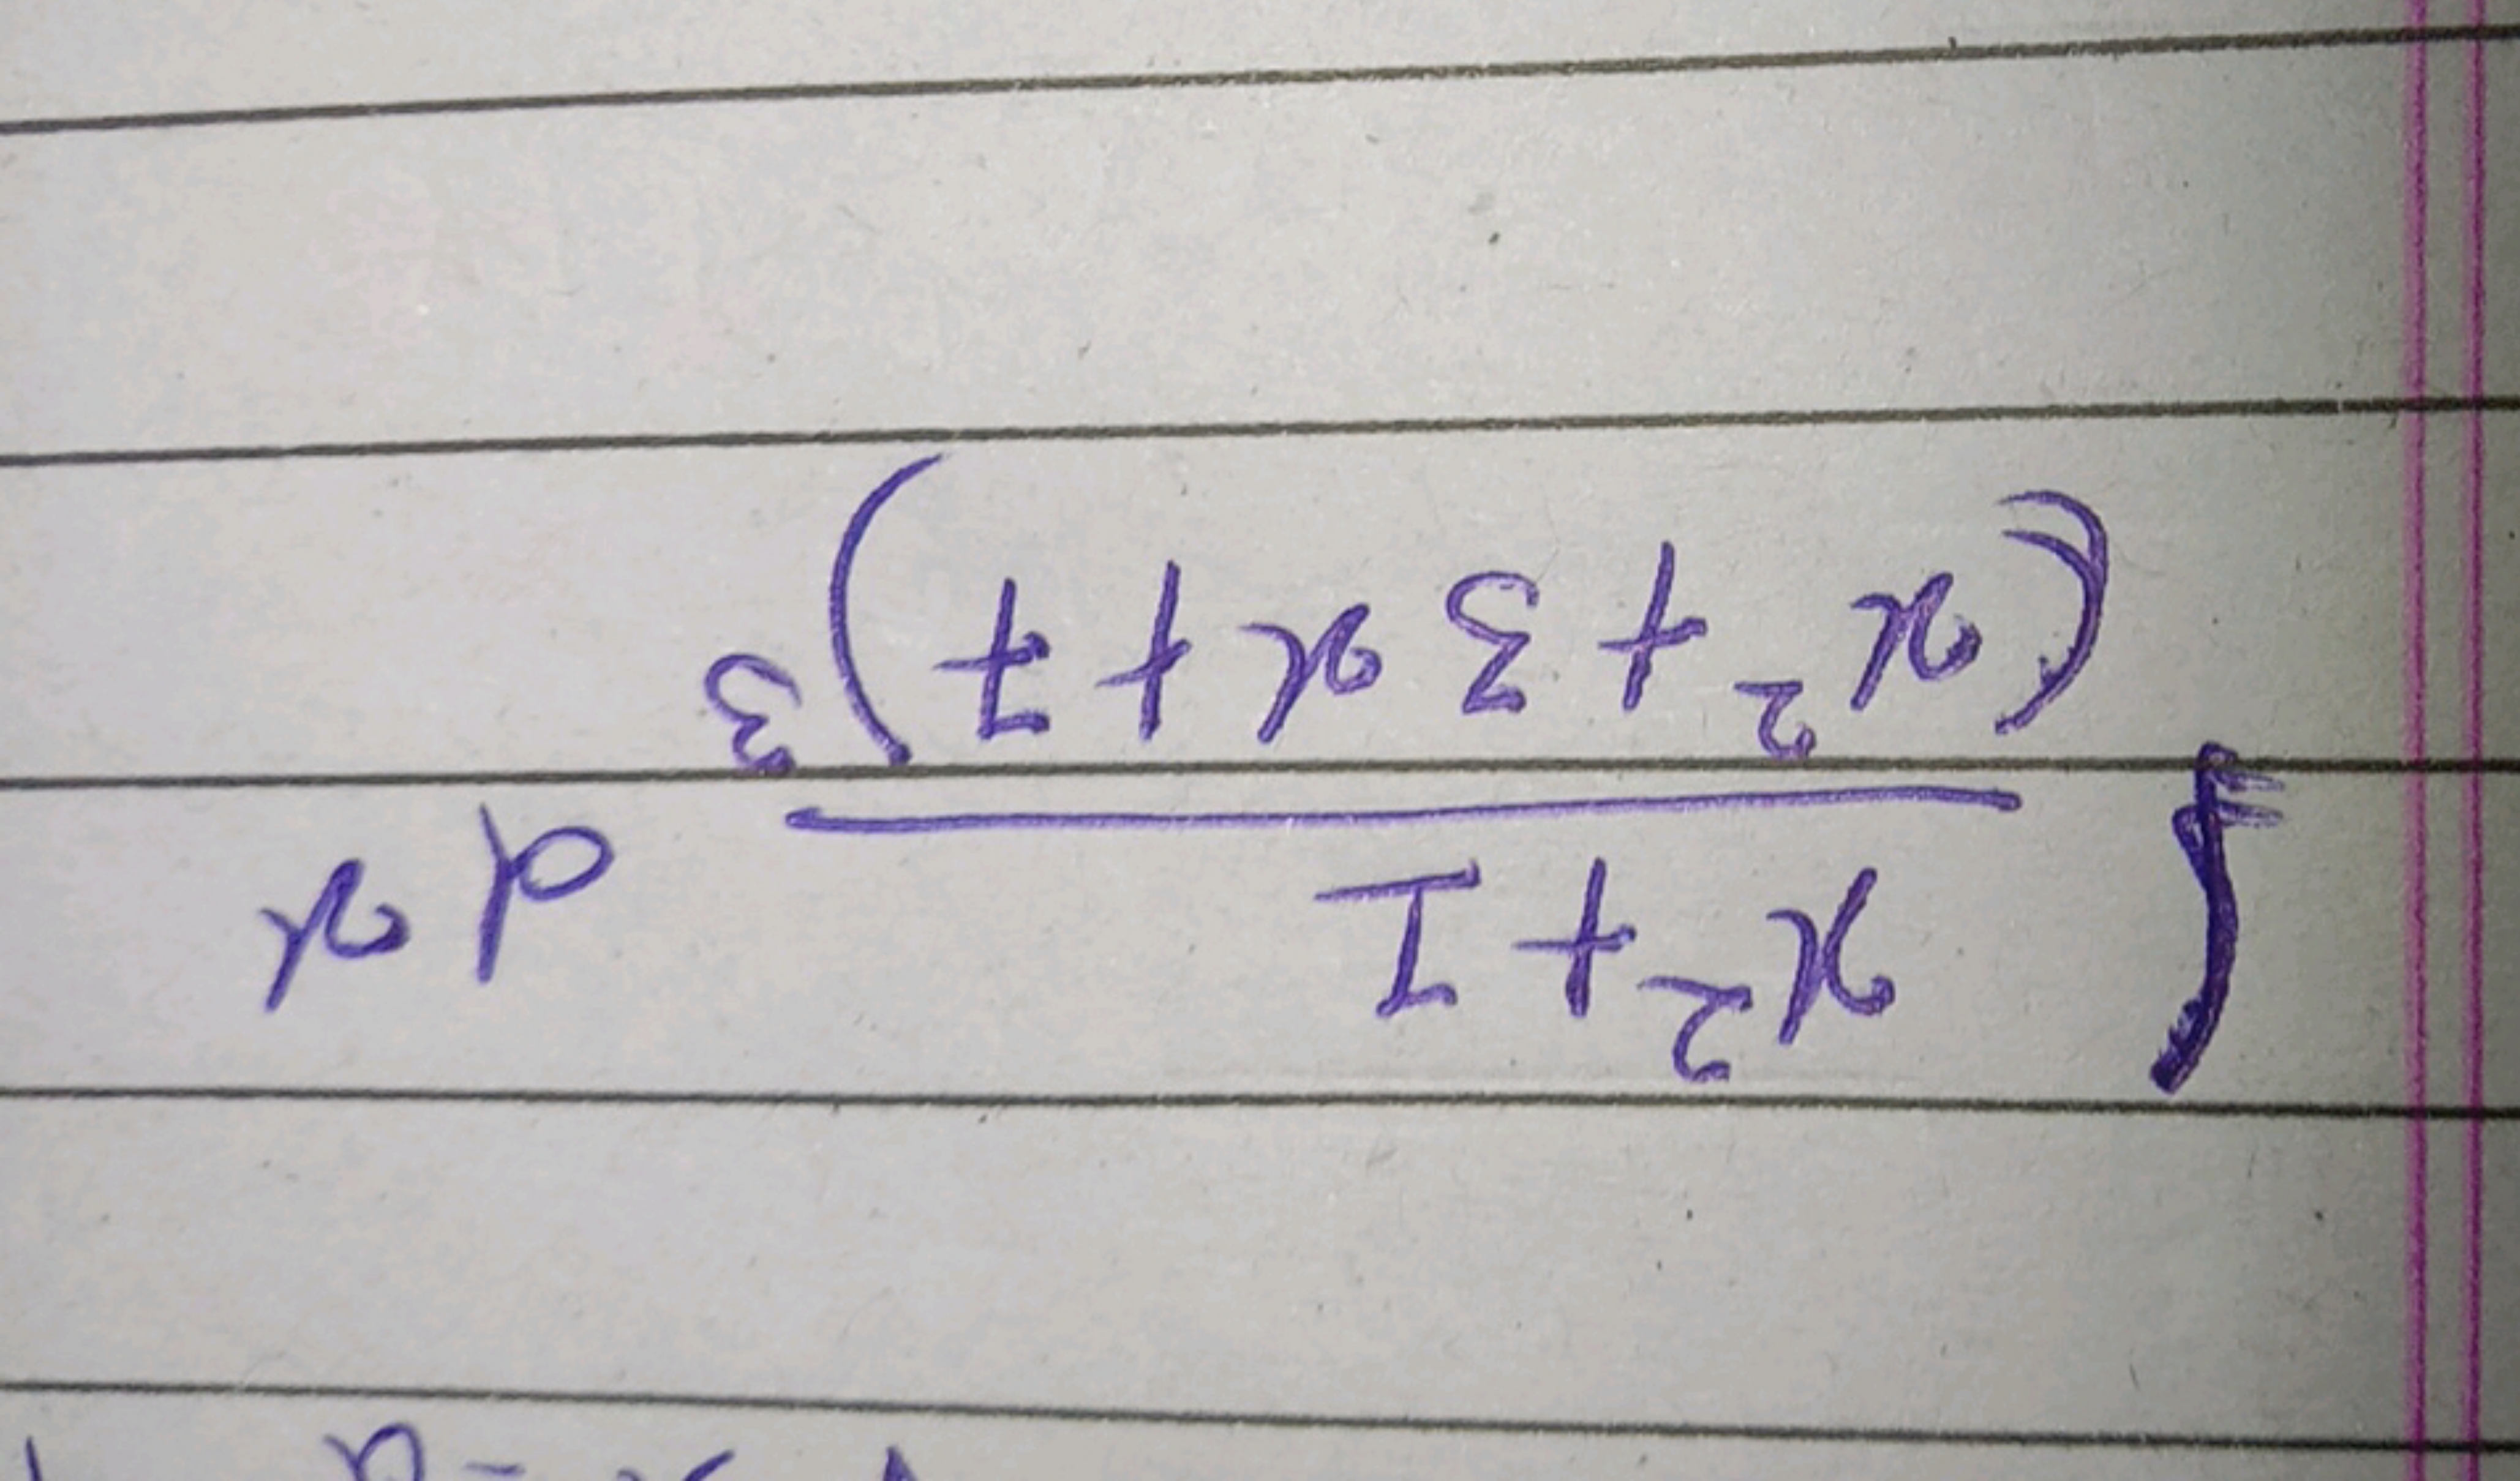 ∫ (x²+1)/(x²+3x+7)³ dx